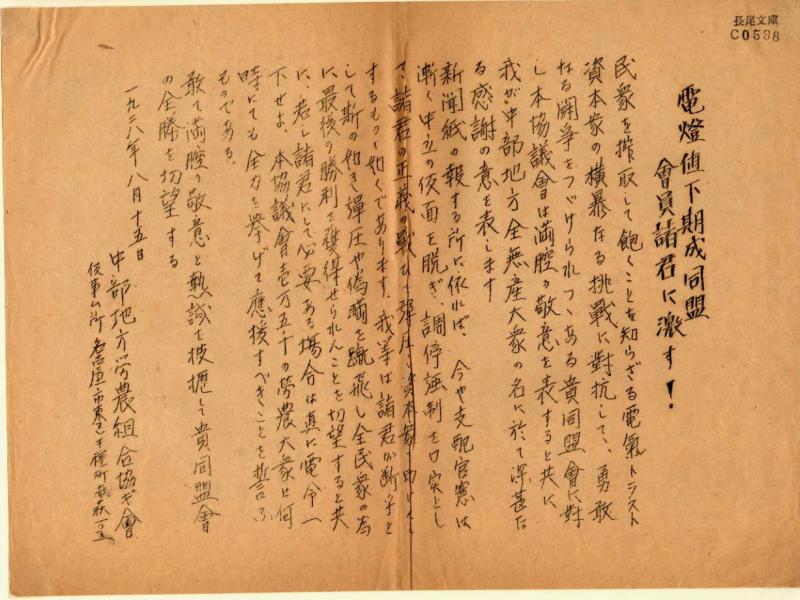 長尾文庫
C0598
電燈値下期成同盟
會員諸君に激す！
民衆を搾取して飽くことを知らざる電氣トラスト
資本家の横暴なる挑戰に對抗して、勇敢
なる闘爭をつゞけられつゝある貴同盟會に對
し本協議會は満腔の敬意を表すると共に
我が中部地方全無産大衆の名に於て深甚な
る感謝の意を表します
新聞紙の報する所に依れば、今や支配官憲は
漸く中立の仮面を脱ぎ、調停強制を口実とし
て、諸君の正義の戰ひを彈圧し資本家に
するものゝ如くであります。我等は諸君が断乎と
して斯の如き彈圧や偽満を蹴飛し全民衆の為
に最後の勝利を獲得せられんことを切望すると共
に、若し諸君にして必要ある場合は直に電令一
下せよ、本協議會壱万五千の勞農大衆は何
時にても全力を挙げて應援すべきことを誓ふ
ものである。
敢て満腔の敬意と熱誠を披瀝して貴同盟會
の全勝を切望する
一九二八年八月十五日
中部地方労農組合協ギ會
仮事ム所 名古屋市東区千種町